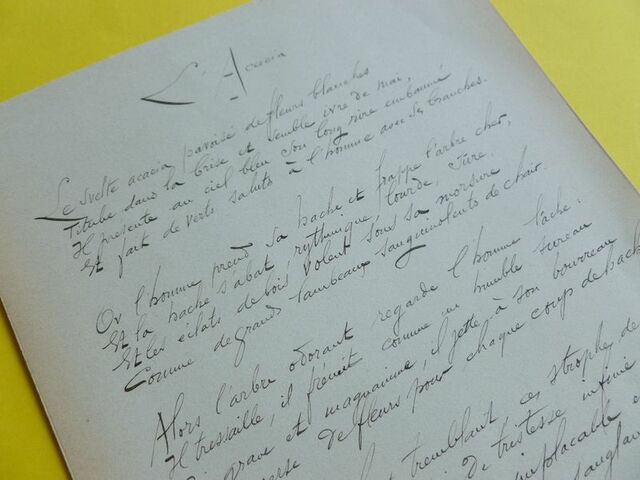 L'Acacia
Le svelte acacia pavoisé de fleurs blanches
Titube dans la brise et semble ivre de mai,
Il présente au ciel bleu son long rire embaumé
Et fait de verts saluts à l'homme avec ses branches.
Or l'homme prend sa hache et frappe l'arbre cher,
Et la hache s'abat rythmique, lourde, sûre.
Et les éclats de bois volent sous sa morsure
Comme de grands lambeaux sanguinolents de chair.
Alors l'arbre odorant regarde l'homme lâche:
Il tressaille, il frémit comme un humble
grave et magnanime, il jette à son bourreau
verse de fleurs pour chaque coup de hache
tremblant, ces strophes de
de tristesse infinie
implacable